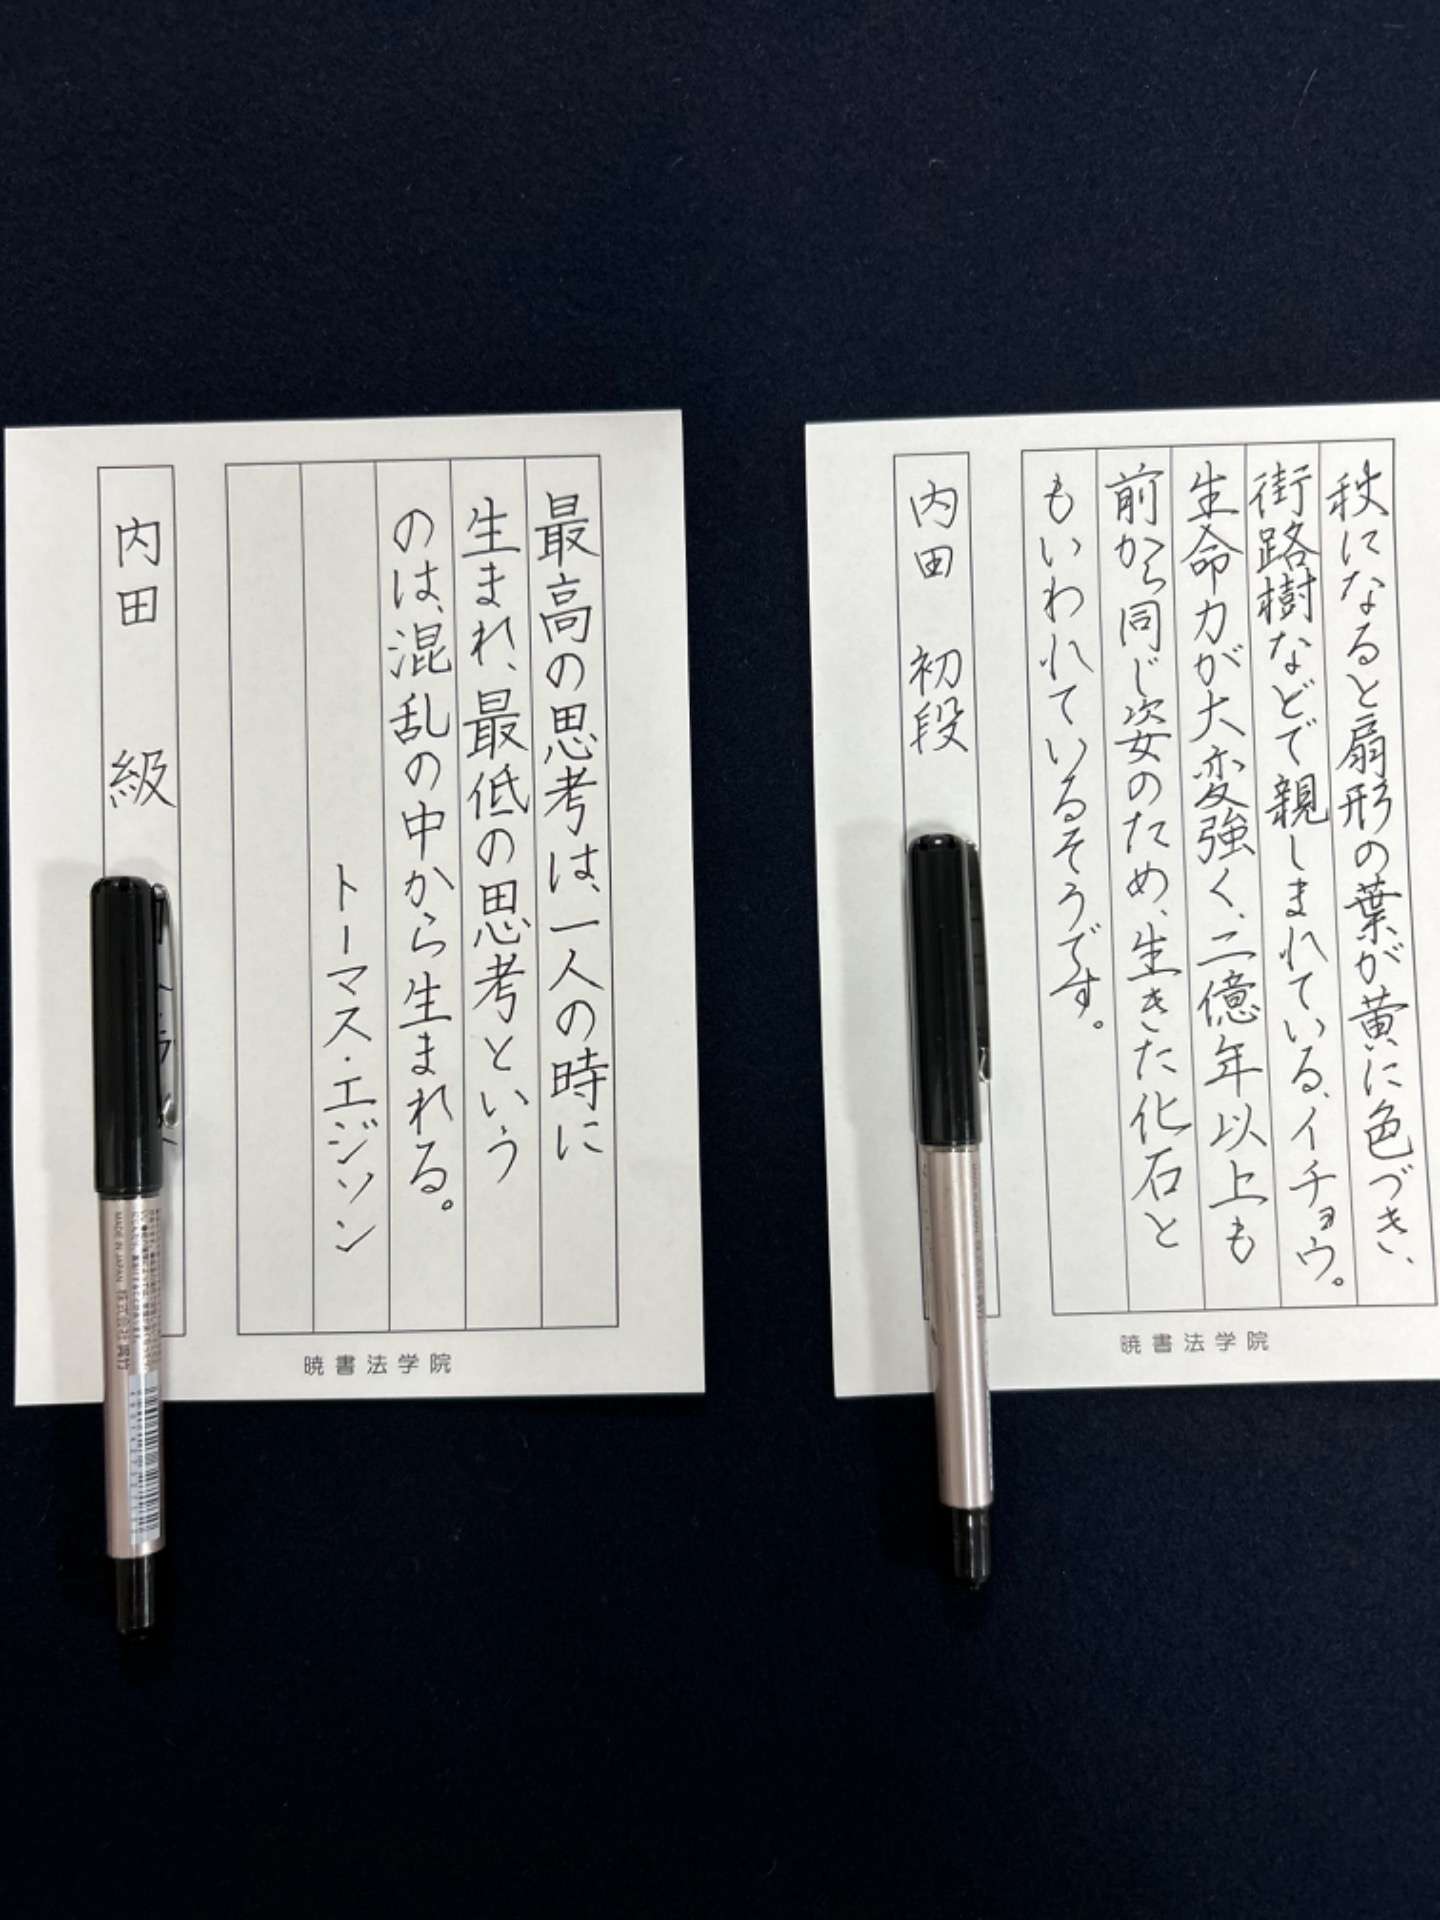 秋になると扇形の葉が黄に色づき、
街路樹などで親しまれている、イチョウ。
生命力が大変強く、二億年以上も
前から同じ姿のため、生きた化石と
もいわれているそうです。
内田 初段
暁書法学院
最高の思考は、一人の時に
生まれ、最低の思考という
のは、混乱の中から生まれる。
トーマス・エジソン
内田 級
暁書法学院
MADE IN JAPAN 株式会社 呉竹